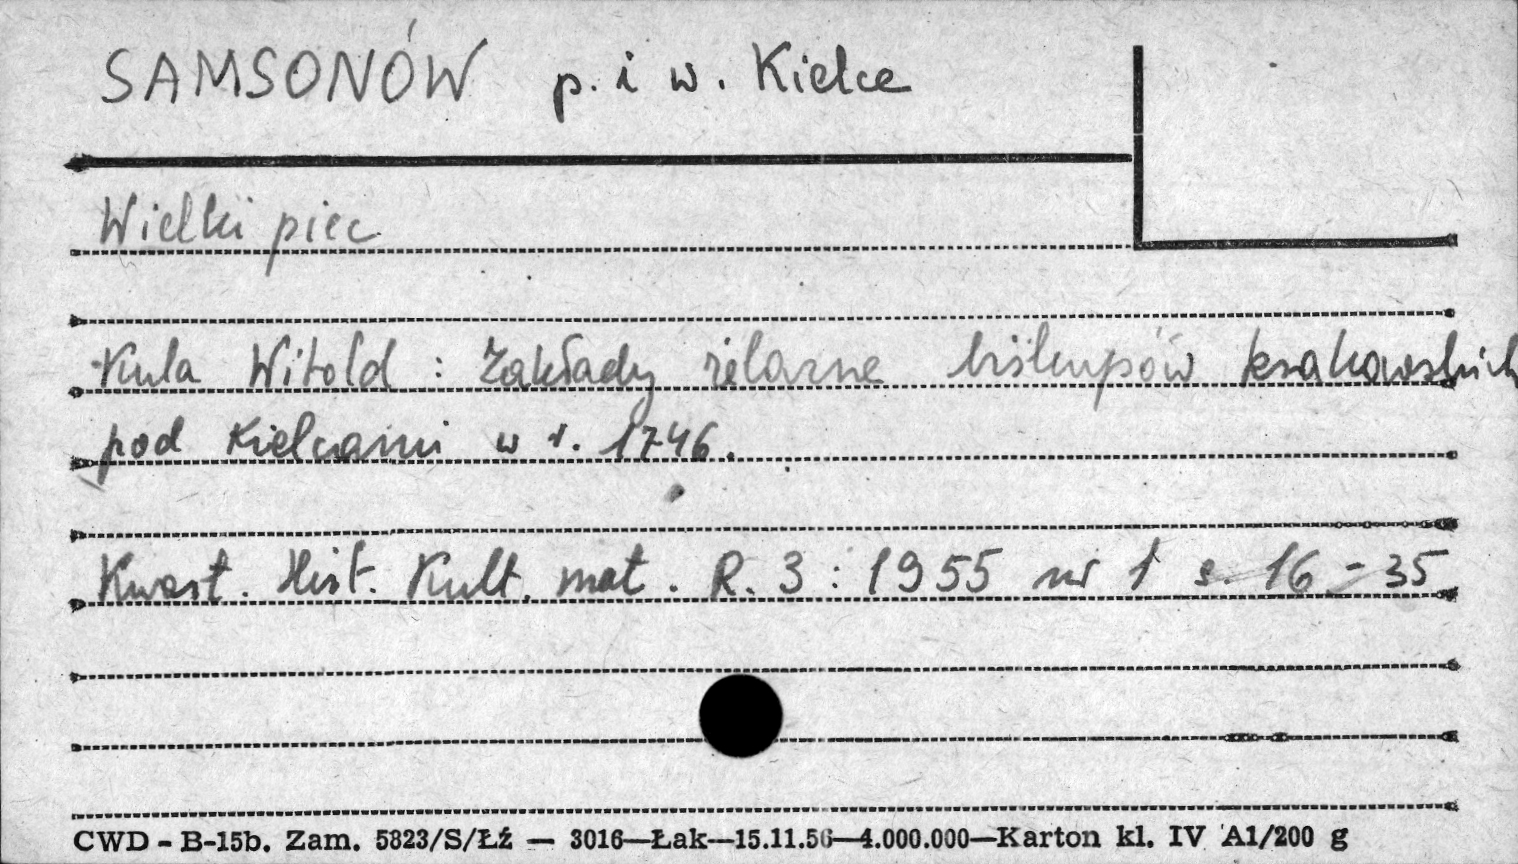 SAMSONÓW p. i w. Kielce
Wielki piec
Kula Witold : Zakłady żelazne biskupów krakowskich
pod Kielcami w r. 1746.
Kwart. Hist. Kult. mat. R. 3 : 1955 nr 1 s. 16 - 35
CWD - B-15b. Zam. 5823/S/Łź — 3016—Łak—15.11.56—4.000.000—Karton kl. IV A1/200 g